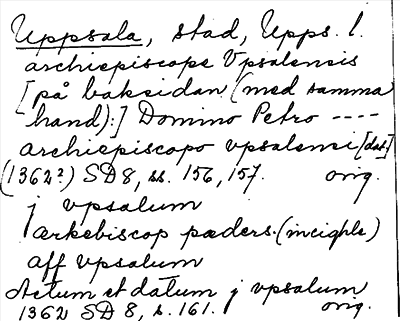 Uppsala, stad, Upps. l.
archiepiscope Vpsalensis
[på baksidan (med samma
hand):] Domino Petro ----
archiepiscopo vpsalensi [dat]
(1362?) SD 8, ss. 156, 157. orig.
j vpsalum
ærkebiscop pæders (incighle)
aff vpsalum
Actum et datum j vpsalum
1362 SD 8, s. 161. orig.